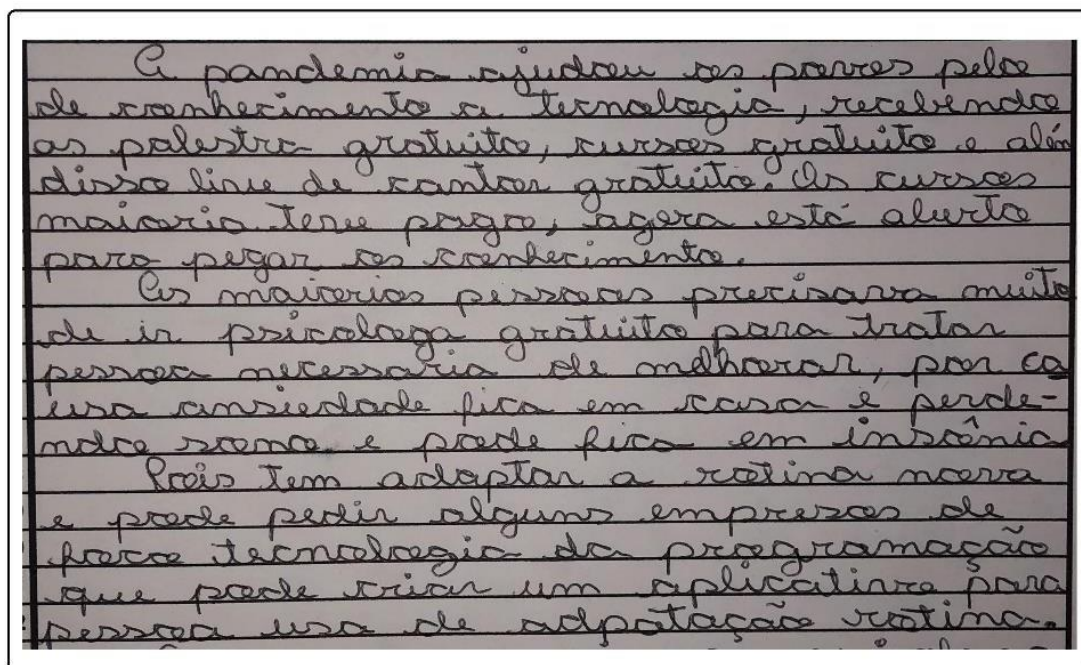 A pandemia ajudou os povos pelo
de conhecimento a tecnologia, recebendo
as palestra gratuito, cursos gratuito e além
disso live de cantor gratuito. Os cursos
maioria teve pago, agora está aberto
para pegar os conhecimento.
As maiorias pessoas precisava muito
de ir psicologa gratuito para tratar
pessoa necessaria de melhorar, por ca
usa ansiedade fica em casa e perde-
ndo sono e pode fica em insônia
Pois tem adaptar a rotina nova
e pode pedir alguns empresas de
foco tecnologia da programação
que pode criar um aplicativo para
pessoa usa de adpatação rotina.